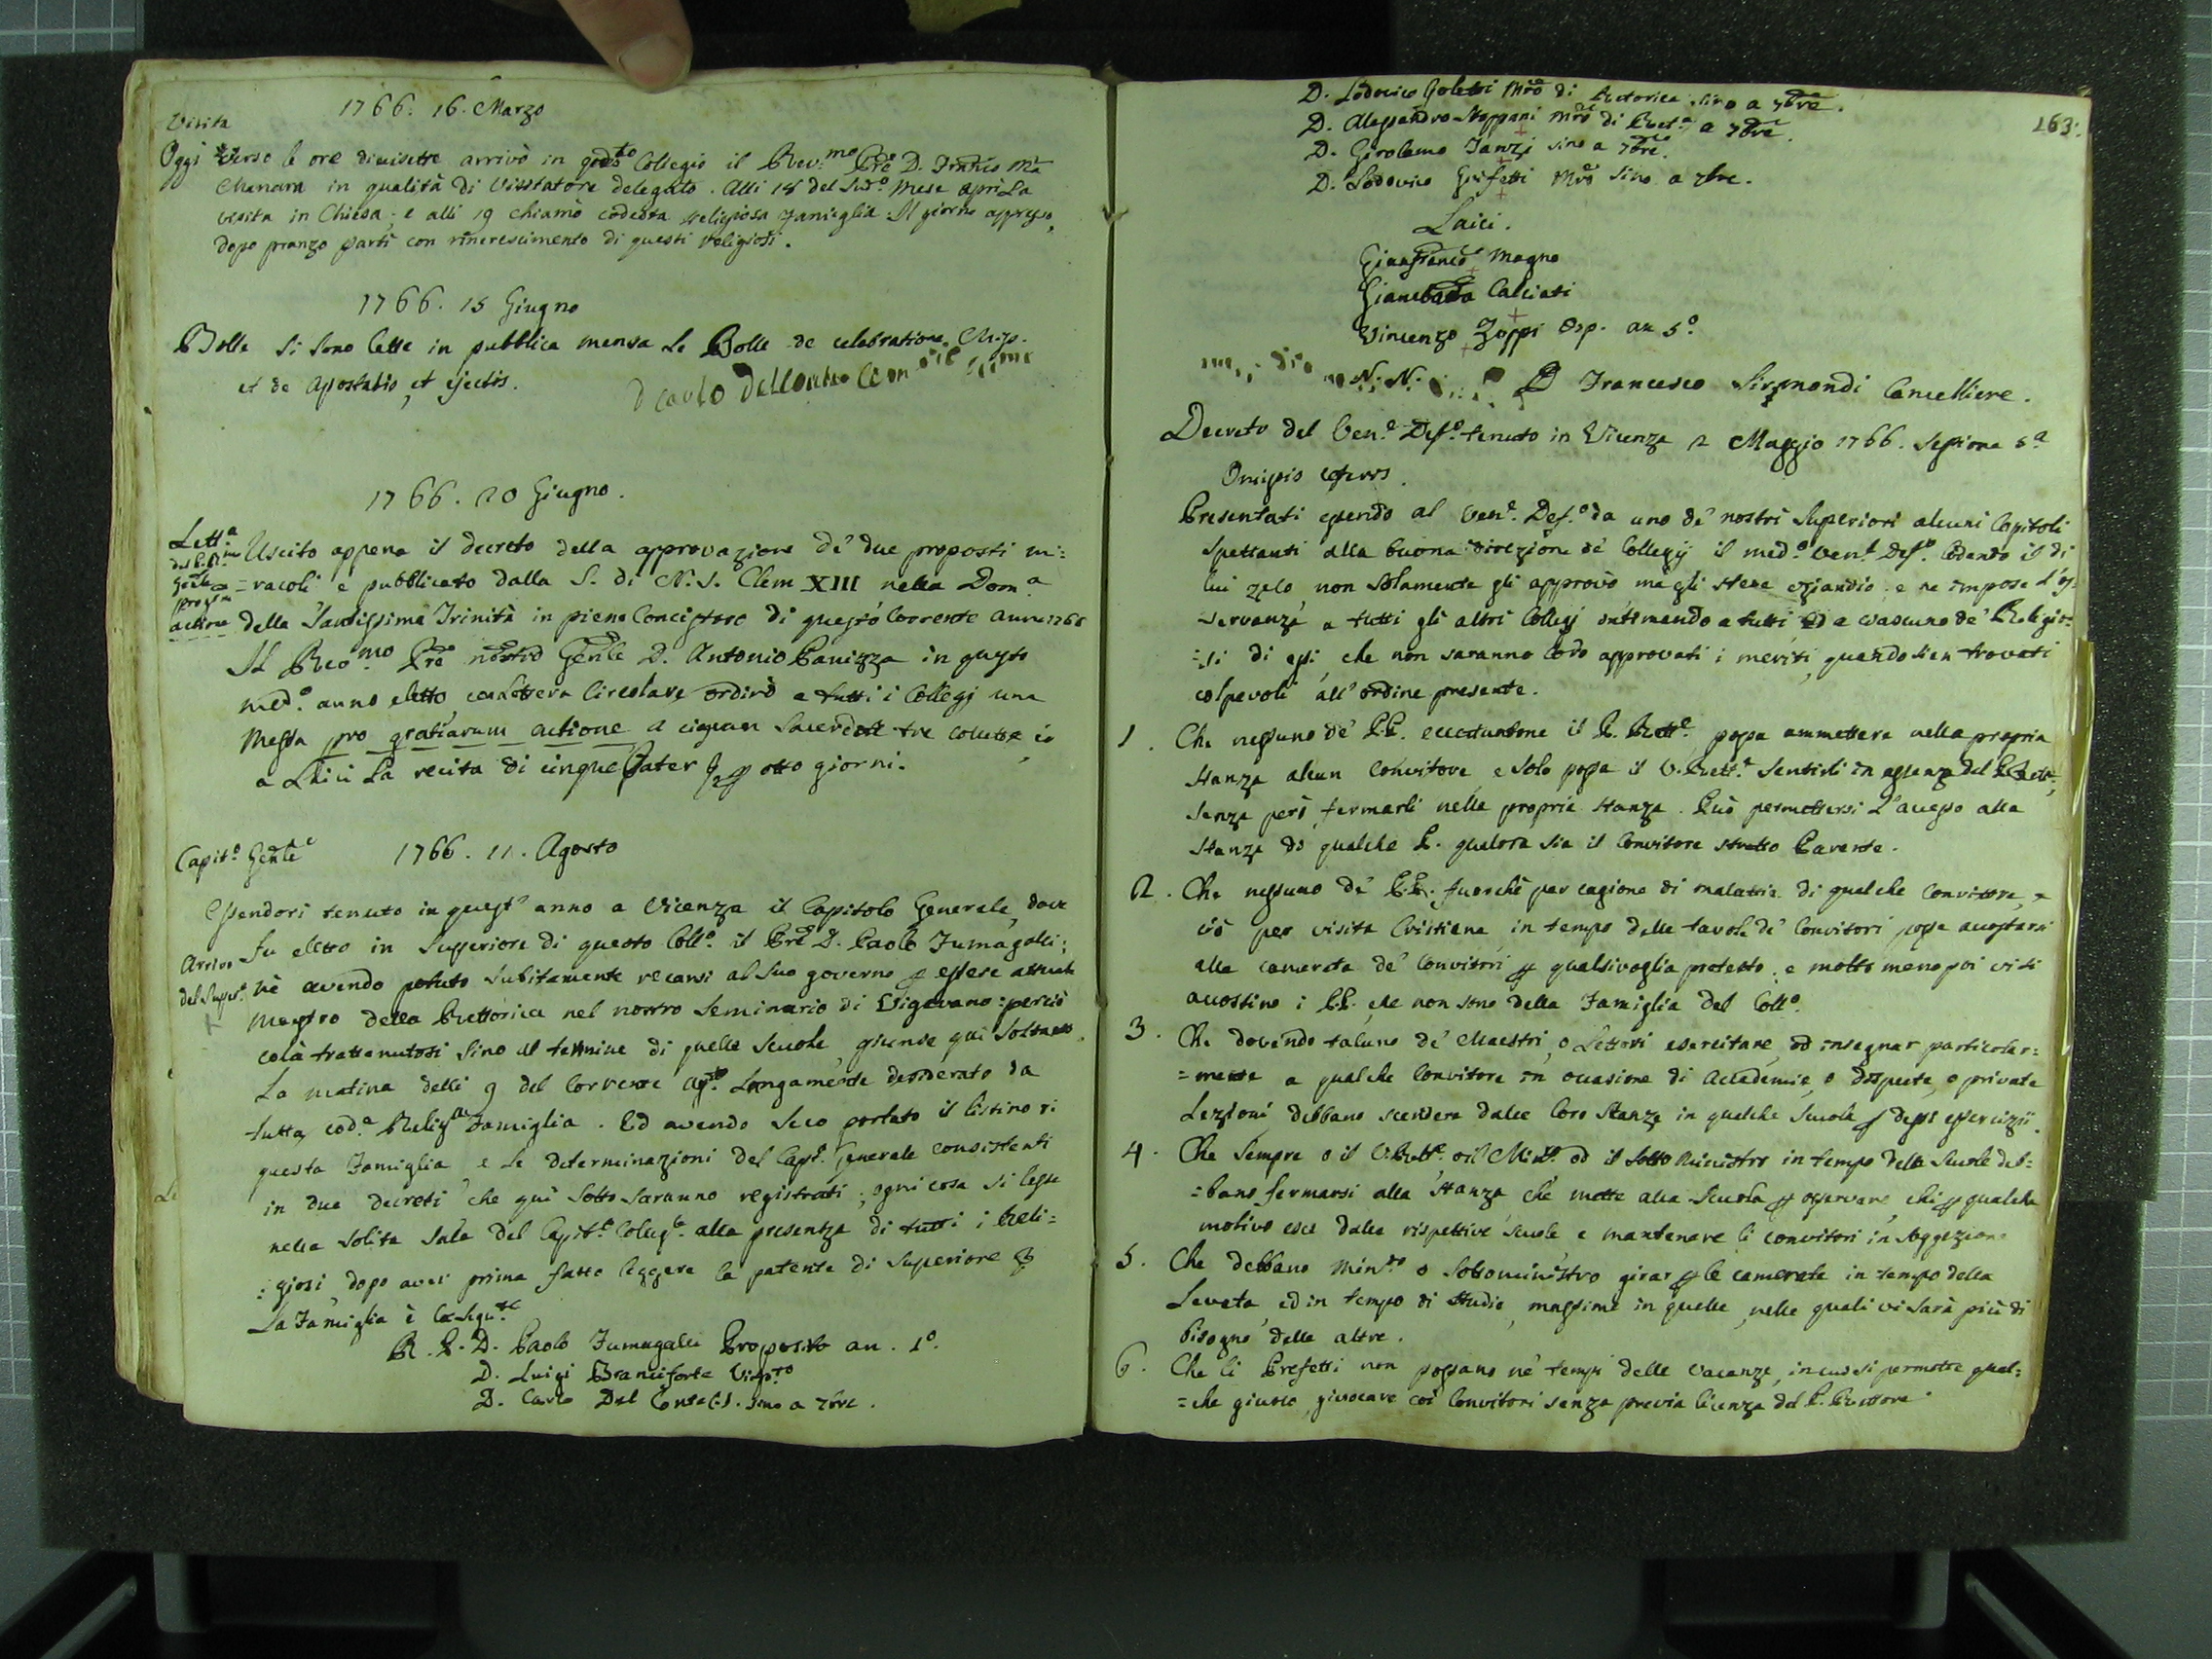 1766. 16. Marzo
Visita
Oggi verso le ore dicisette arrivò in godto Collegio il Rev.mo Pre D. Franco Ma
Manara in qualità di Visitatore delegato. Alli 18 del Sudo Mese aprì la
visita in Chiesa, e alli 19 chiamò codesta religiosa famiglia. Il giorno appresso,
dopo pranzo partì con rincrescimento di questi religiosi.
1766. 15 Giugno
Bolle Si sono lette in pubblica mensa Le Bolle de celebratione Miss.
et de Apostatis, et ejectis.
1766. 20 Giugno.
Lett.a
del P. R.mo
Genle
pro gr.m
actione
Uscito appena il decreto della approvazione de' due proposti mi=
=racoli e pubblicato dalla S. di N. S. Clem XIII nella Dom.a
della Santissima Trinità in pieno Concistoro di questo corrente anno 1766
Il Reo.mo Pre nostro Genle D. Antonio Panizza in questo
med.o anno eletto, con Lettera Circolare ordinò a tutti i Collegj una
Messa pro gratiarum actione a ciascun Sacerdote tre collette, e
a Laici la recita di cinque Pater per otto giorni.
Capit.o Genle
1766. 11. Agosto
Essendosi tenuto in quest' anno a Vicenza il Capitolo Generale, dove
fu eletto in Superiore di questo Coll.o il Pre D. Paolo Fumagalli;
Arrivo
del Super.
nè avendo potuto subitamente recarsi al suo governo per essere attuale
Maestro della Rettorica nel nostro Seminario di Vigevano: perciò
colà trattenutosi sino al termine di quelle Scuole, giunse qui soltanto
La matina delli 9 del Corrente Ag.to Longamente desiderato da
tutta cod.a Relig.a Famiglia. Ed avendo seco portato il listino di
questa Famiglia e le determinazioni del Capo. Generale consistenti
in due decreti che quì sotto saranno registrati; ogni cosa si lesse
nella solita Sala del Capit.o Colleg.le alla presenza di tutti i Reli=
:giosi, dopo aver prima fatto leggere la patente di Superiore &
La Famiglia è la segu.te
R. P. D. Paolo Fumagalli Proposito an. 1.o
D. Luigi Branciforte Vicep.to
D. Carlo Del Conte C.S. sino a 7bre.
163.
D. Lodovico Goletti Mro di Rettorica sino a 7bre.
D. Alessandro Noppani Mro di Rett.a a 7bre.
D. Girolamo Tanzi sino a 7bre.
D. Lodovico Grifetti Mro sino a 7bre.
Laici.
Gianfranco Magno
Giambatta Calciati
Vincenzo Zoppi Osp. an 5.o
N. N. D Francesco Sirmondi Cancelliere.
Decreto del Ven.e Def.o tenuto in Vicenza 2 Maggio 1766. Sessione 5.a
Omissis ceteris.
Presentati essendo al Ven.e Def.o da uno de' nostri Superiori alcuni Capitoli
Spettanti alla buona direzione de' Collegj il med.o Ven.e Def.o lodando il di
lui zelo non solamente gli approvò ma gli stese eziandio: e ne impose l'os=
=servanza a tutti gli altri Collegj intimando a tutti ed a ciascuno de' Religio=
=si di essi, che non saranno loro approvati i meriti, quando sien trovati
colpevoli all' ordine presente.
1. Che nessuno de' P.P. eccetuatone il P. Rett.e possa ammettere nella propria
stanza alcun Convitore, e solo possa il V. Rett.e sentirli in assenza del P. Rett.e,
senza però fermarli nella propria stanza. Può permettersi l'accesso alla
stanza di qualche P. qualora sia il Convitore stretto Parente.
2. Che nessuno de' P.P. fuorchè per cagione di malattia di qualche Convittore, e
ciò per visita Cristiana, in tempo delle tavole de' Convitori possa accostarsi
alla camerata de' Convitori per qualsivoglia pretesto: e molto meno poi vi si
accostino i P.P. che non sono della Famiglia del Coll.o
3. Che dovendo taluno de' Maestri, o Lettori esercitare, od insegnar particolar=
=mente a qualche Convitore in occasione di Accademie, o dispute, o private
Lezioni debbano scendere dalle loro stanze in qualche Scuola per dessi esercizii.
4. Che Sempre o il V. Rett.e o il Min.ro od il Sotto Ministro in tempo della Scuole deb=
=bano fermarsi alla stanza, che mette alla Scuola per osservare chi per qualche
motivo esce dalle rispettive Scuole e mantenere li convitori in soggezione
5. Che debbano Min.ro o Sottoministro girar per le camerate in tempo della
Levata, ed in tempo di studio, massime in quelle, nelle quali vi sarà più di
bisogno delle altre.
6. Che li Prefetti non possano ne' tempi delle vacanze, in cui si permette qual=
=che giuoco, giuocare coi Convitori senza previa licenza del P. Rettore